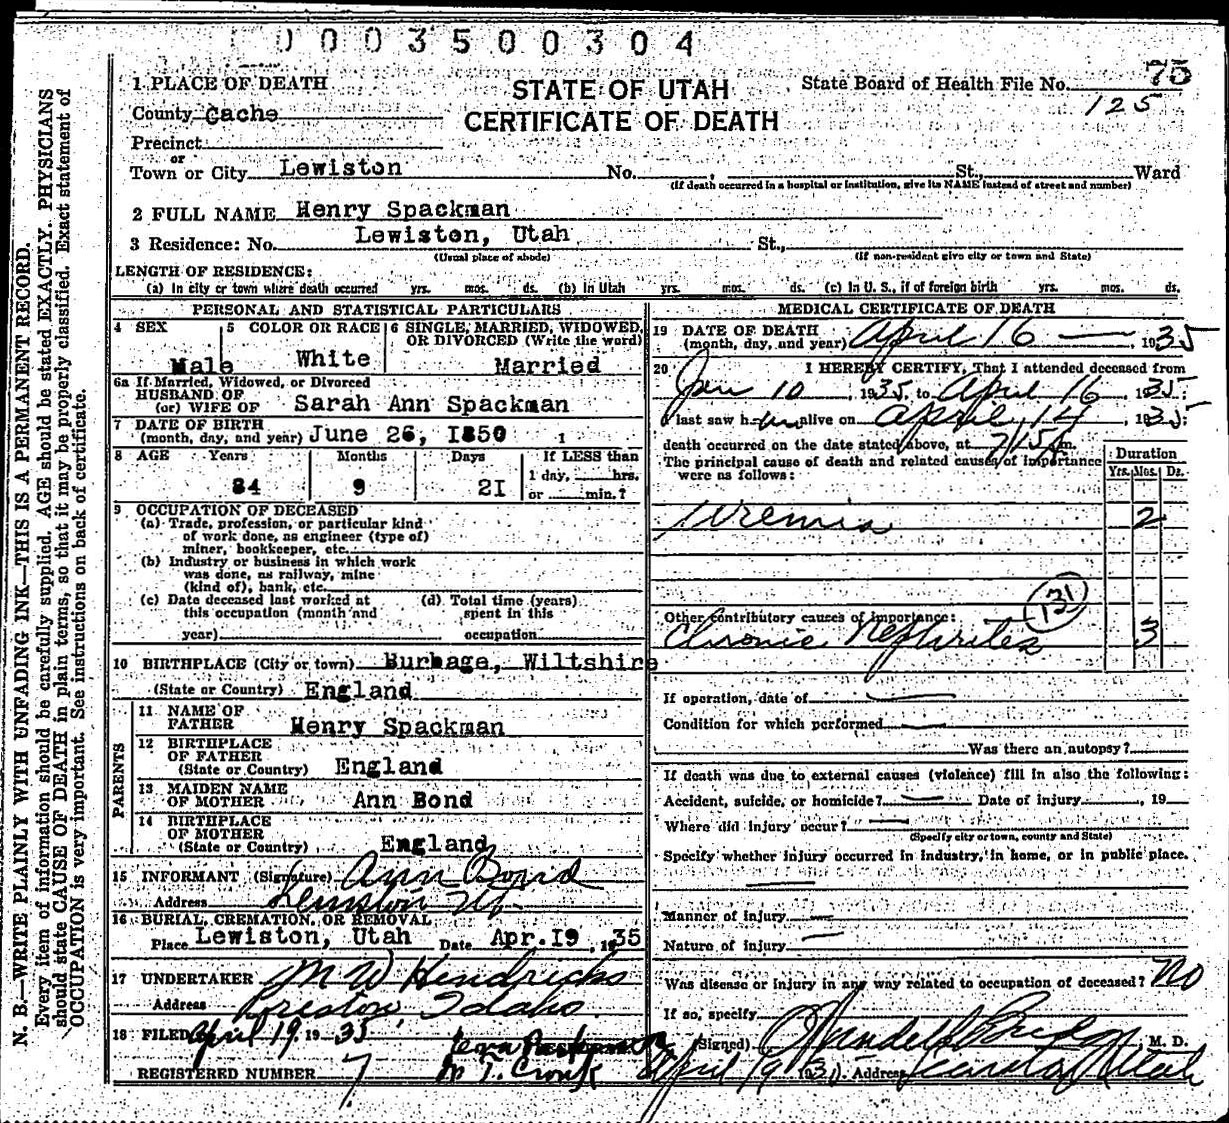 0003500304
1 PLACE OF DEATH
STATE OF UTAH
CERTIFICATE OF DEATH
State Board of Health File No. 75
125
County Cache
Precinct
or
Town or City Lewiston No. , St., Ward
(If death occurred in a hospital or institution, give its NAME instead of street and number)
2 FULL NAME Henry Spackman
3 Residence: No. Lewiston, Utah St.,
(Usual place of abode) (If non-resident give city or town and State)
LENGTH OF RESIDENCE:
(a) In city or town where death occurred yrs. mos. ds. (b) In Utah yrs. mos. ds. (c) In U. S., if of foreign birth yrs. mos. ds.
PERSONAL AND STATISTICAL PARTICULARS
4 SEX Male
5 COLOR OR RACE White
6 SINGLE, MARRIED, WIDOWED,
OR DIVORCED (Write the word)
Married
6a If Married, Widowed, or Divorced
HUSBAND OF
(or) WIFE OF Sarah Ann Spackman
7 DATE OF BIRTH
(month, day, and year) June 26, 1850
8 AGE Years Months Days If LESS than
1 day, hrs.
84 9 21 or min.?
9 OCCUPATION OF DECEASED
(a) Trade, profession, or particular kind
of work done, as engineer (type of)
miner, bookkeeper, etc.
(b) Industry or business in which work
was done, as railway, mine
(kind of), bank, etc.
(c) Date deceased last worked at
this occupation (month and
year)
(d) Total time (years)
spent in this
occupation
10 BIRTHPLACE (City or town) Burbage, Wiltshire
(State or Country) England
PARENTS
11 NAME OF
FATHER Henry Spackman
12 BIRTHPLACE
OF FATHER
(State or Country) England
13 MAIDEN NAME
OF MOTHER Ann Bond
14 BIRTHPLACE
OF MOTHER
(State or Country) England
15 INFORMANT (Signature) Ann Bond
Address Lewiston Ut.
16 BURIAL, CREMATION, OR REMOVAL
Place Lewiston, Utah Date Apr. 19, 1935
17 UNDERTAKER M W Hendricks
Address Preston, Idaho.
18 FILED April 19, 1935
REGISTERED NUMBER 7
MEDICAL CERTIFICATE OF DEATH
19 DATE OF DEATH
(month, day, and year) April 16 — , 1935
20 I HEREBY CERTIFY, That I attended deceased from
Jan 10, 1935, to April 16, 1935;
I last saw him alive on April 14, 1935;
death occurred on the date stated above, at 7/15 A m.
The principal cause of death and related causes of importance
were as follows:
Duration
Yrs. Mos. Ds.
Uremia 2
131
Other contributory causes of importance:
Chronic Nephrites 3
If operation, date of
Condition for which performed
Was there an autopsy?
If death was due to external causes (violence) fill in also the following:
Accident, suicide, or homicide? Date of injury , 19
Where did injury occur?
(Specify city or town, county and State)
Specify whether injury occurred in industry, in home, or in public place.
Manner of injury
Nature of injury
Was disease or injury in any way related to occupation of deceased? No
If so, specify
(Signed) , M. D.
April 19 1935. Address Utah
N. B.—WRITE PLAINLY WITH UNFADING INK—THIS IS A PERMANENT RECORD.
Every item of information should be carefully supplied. AGE should be stated EXACTLY. PHYSICIANS
should state CAUSE OF DEATH in plain terms, so that it may be properly classified. Exact statement of
OCCUPATION is very important. See instructions on back of certificate.